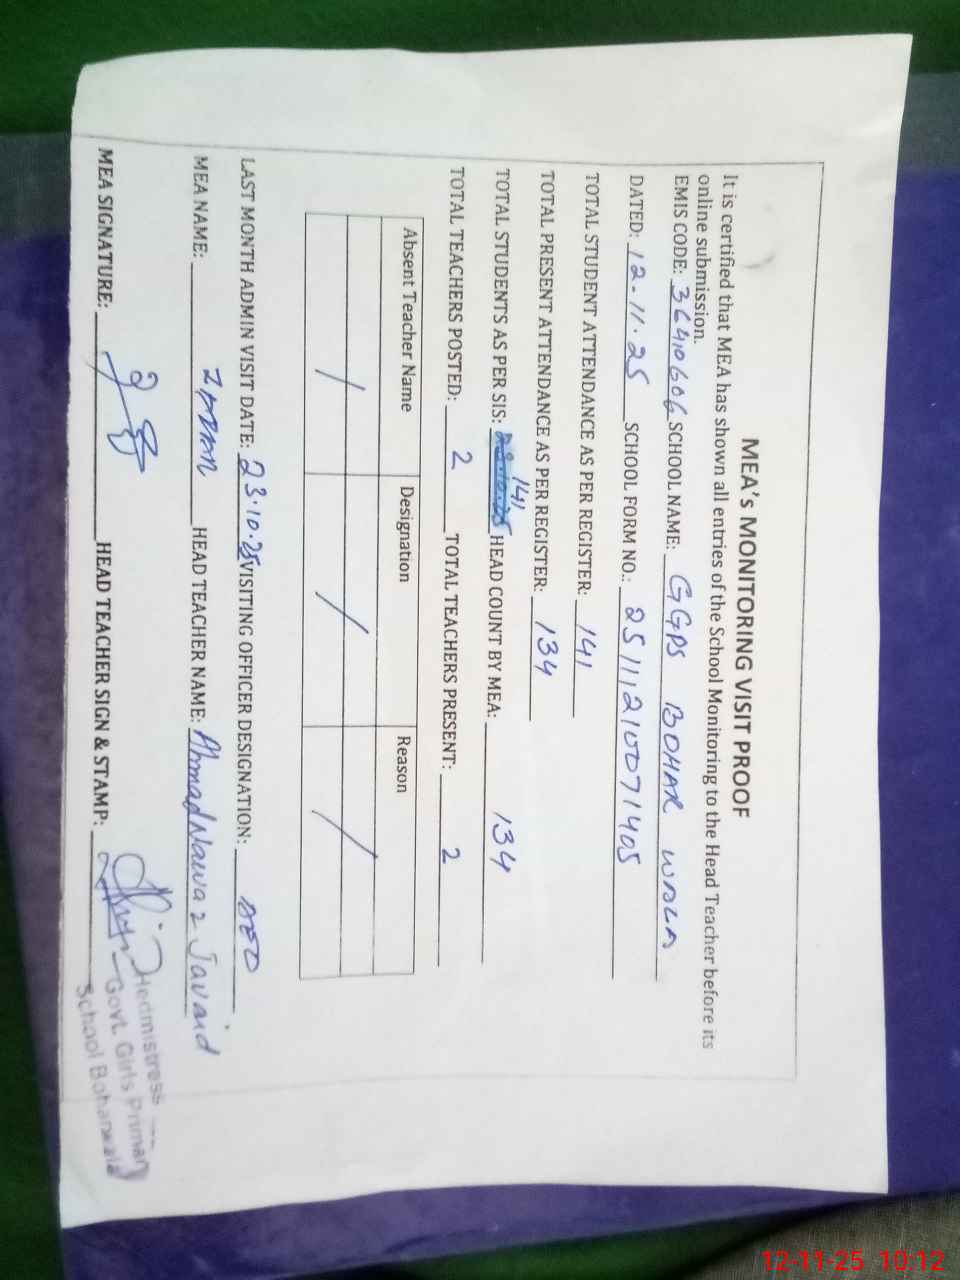 MEA's MONITORING VISIT PROOF
It is certified that MEA has shown all entries of the School Monitoring to the Head Teacher before its
online submission.
EMIS CODE: 36410606 SCHOOL NAME: GGPS BOHAR WALA
DATED: 12.11.25 SCHOOL FORM NO.: 25111210071405
TOTAL STUDENT ATTENDANCE AS PER REGISTER: 141
TOTAL PRESENT ATTENDANCE AS PER REGISTER: 134
TOTAL STUDENTS AS PER SIS: 141 HEAD COUNT BY MEA: 134
TOTAL TEACHERS POSTED: 2 TOTAL TEACHERS PRESENT: 2
Absent Teacher Name Designation Reason
/ / /
LAST MONTH ADMIN VISIT DATE: 23.10.25 VISITING OFFICER DESIGNATION:
MEA NAME: HEAD TEACHER NAME: Ahmad Nawaz Javaid
MEA SIGNATURE: HEAD TEACHER SIGN & STAMP:
Hedmistress
Govt. Girls Primary
School Boharwala
12-11-25 10:12